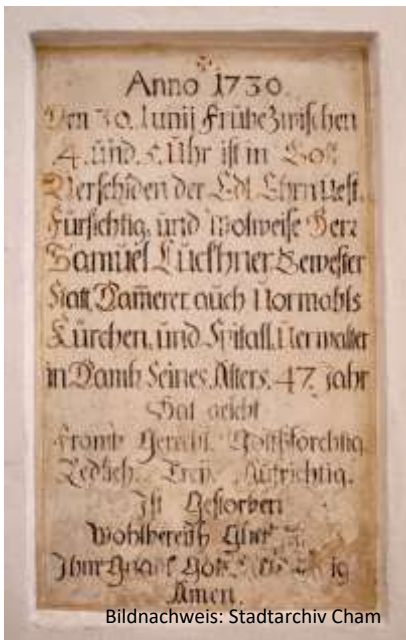 Anno 1730.
Den 30. Iunij Frühe Zwischen
4. und 5. Uhr ist in Gott
Verschiden der Edl Ehrn Vest.
Fürsichtig, und Wolweise Herr
Samuel Luckhner Gewester
Statt Cam̄erer auch Vormahls
Kürchen, und Spitall Verwalter
in Camb Seines Alters. 47. jahr
Hat gelebt
Fromb Gerecht. Gottsforchtig.
Redlich. Treu. Aufrichtig.
Ist Gestorben
Wohlbereith
Ihm Gnad Gott ig
Amen.
Bildnachweis: Stadtarchiv Cham